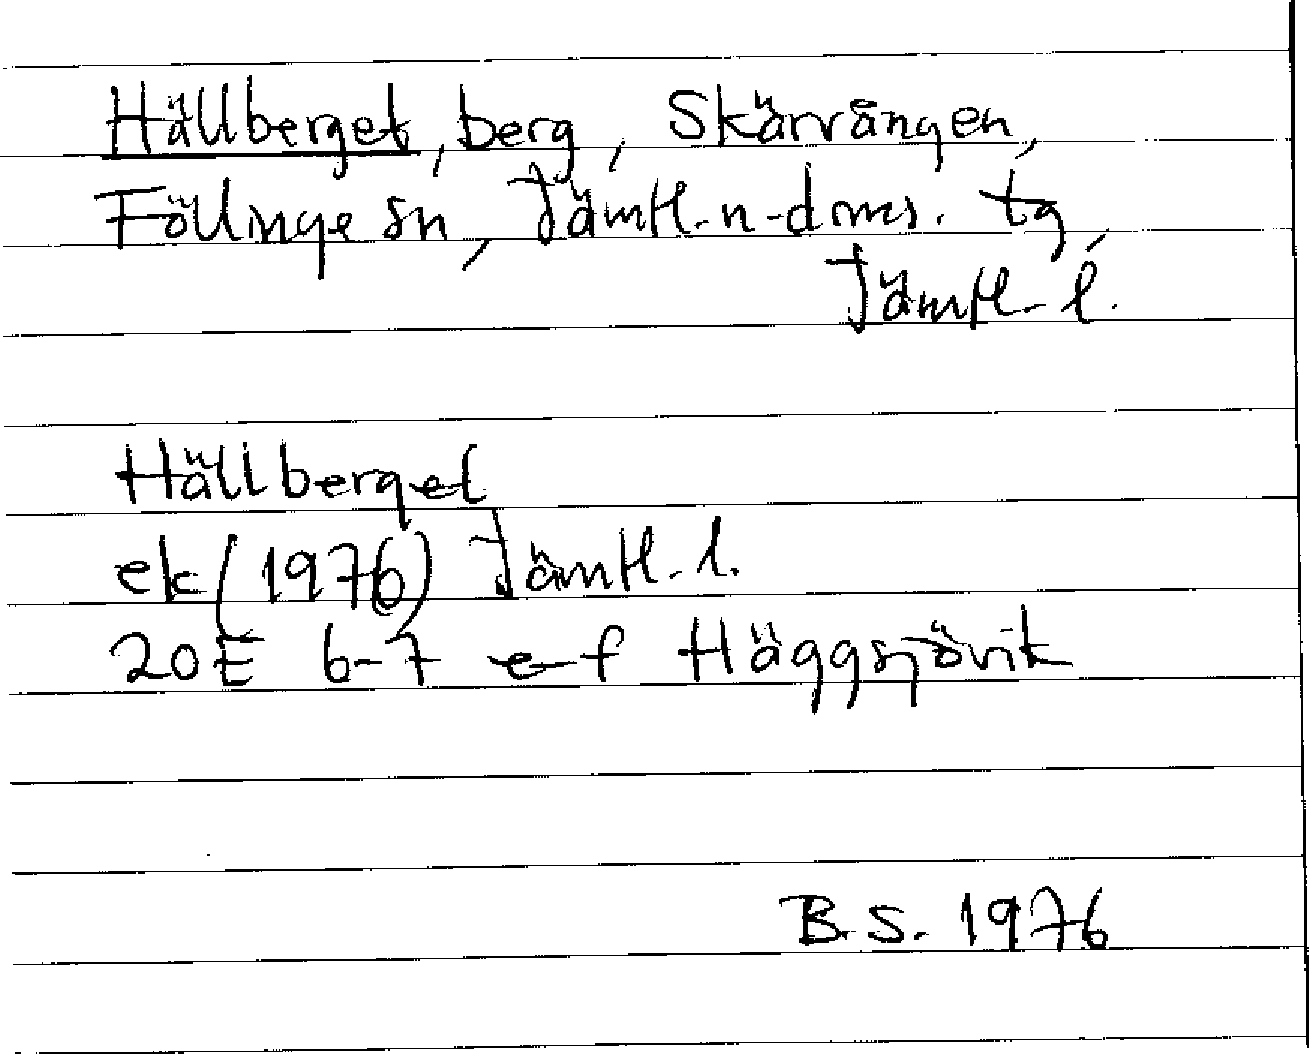 Hällberget, berg, Skärvången,
Föllinge sn, Jämtl. n-doms. tg,
Jämtl. l.
Hällberget
ek (1976) Jämtl. l.
20E 6-7 e-f Häggsjövik
B.S. 1976